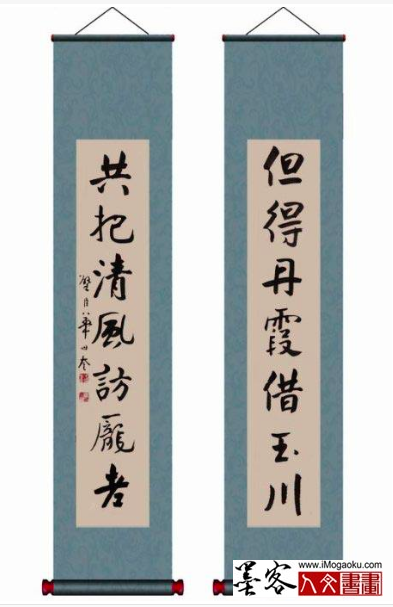 但得丹霞借玉川
共把清風訪龐老
墨客
www.iMogaoku.com
人文書畫